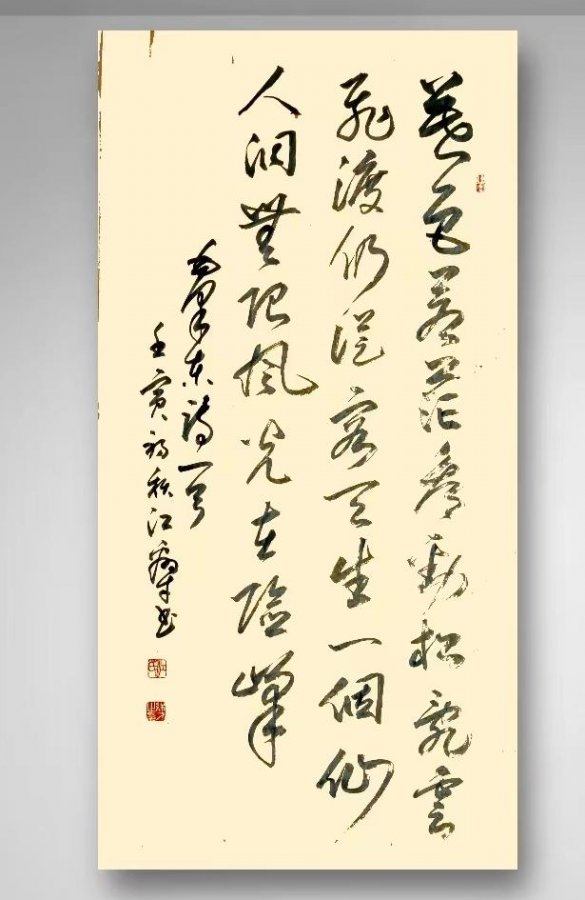 暮色蒼茫看勁松亂雲
飛渡仍從容天生一個仙
人洞無限風光在險峰
毛澤東詩一首
壬寅初秋江書